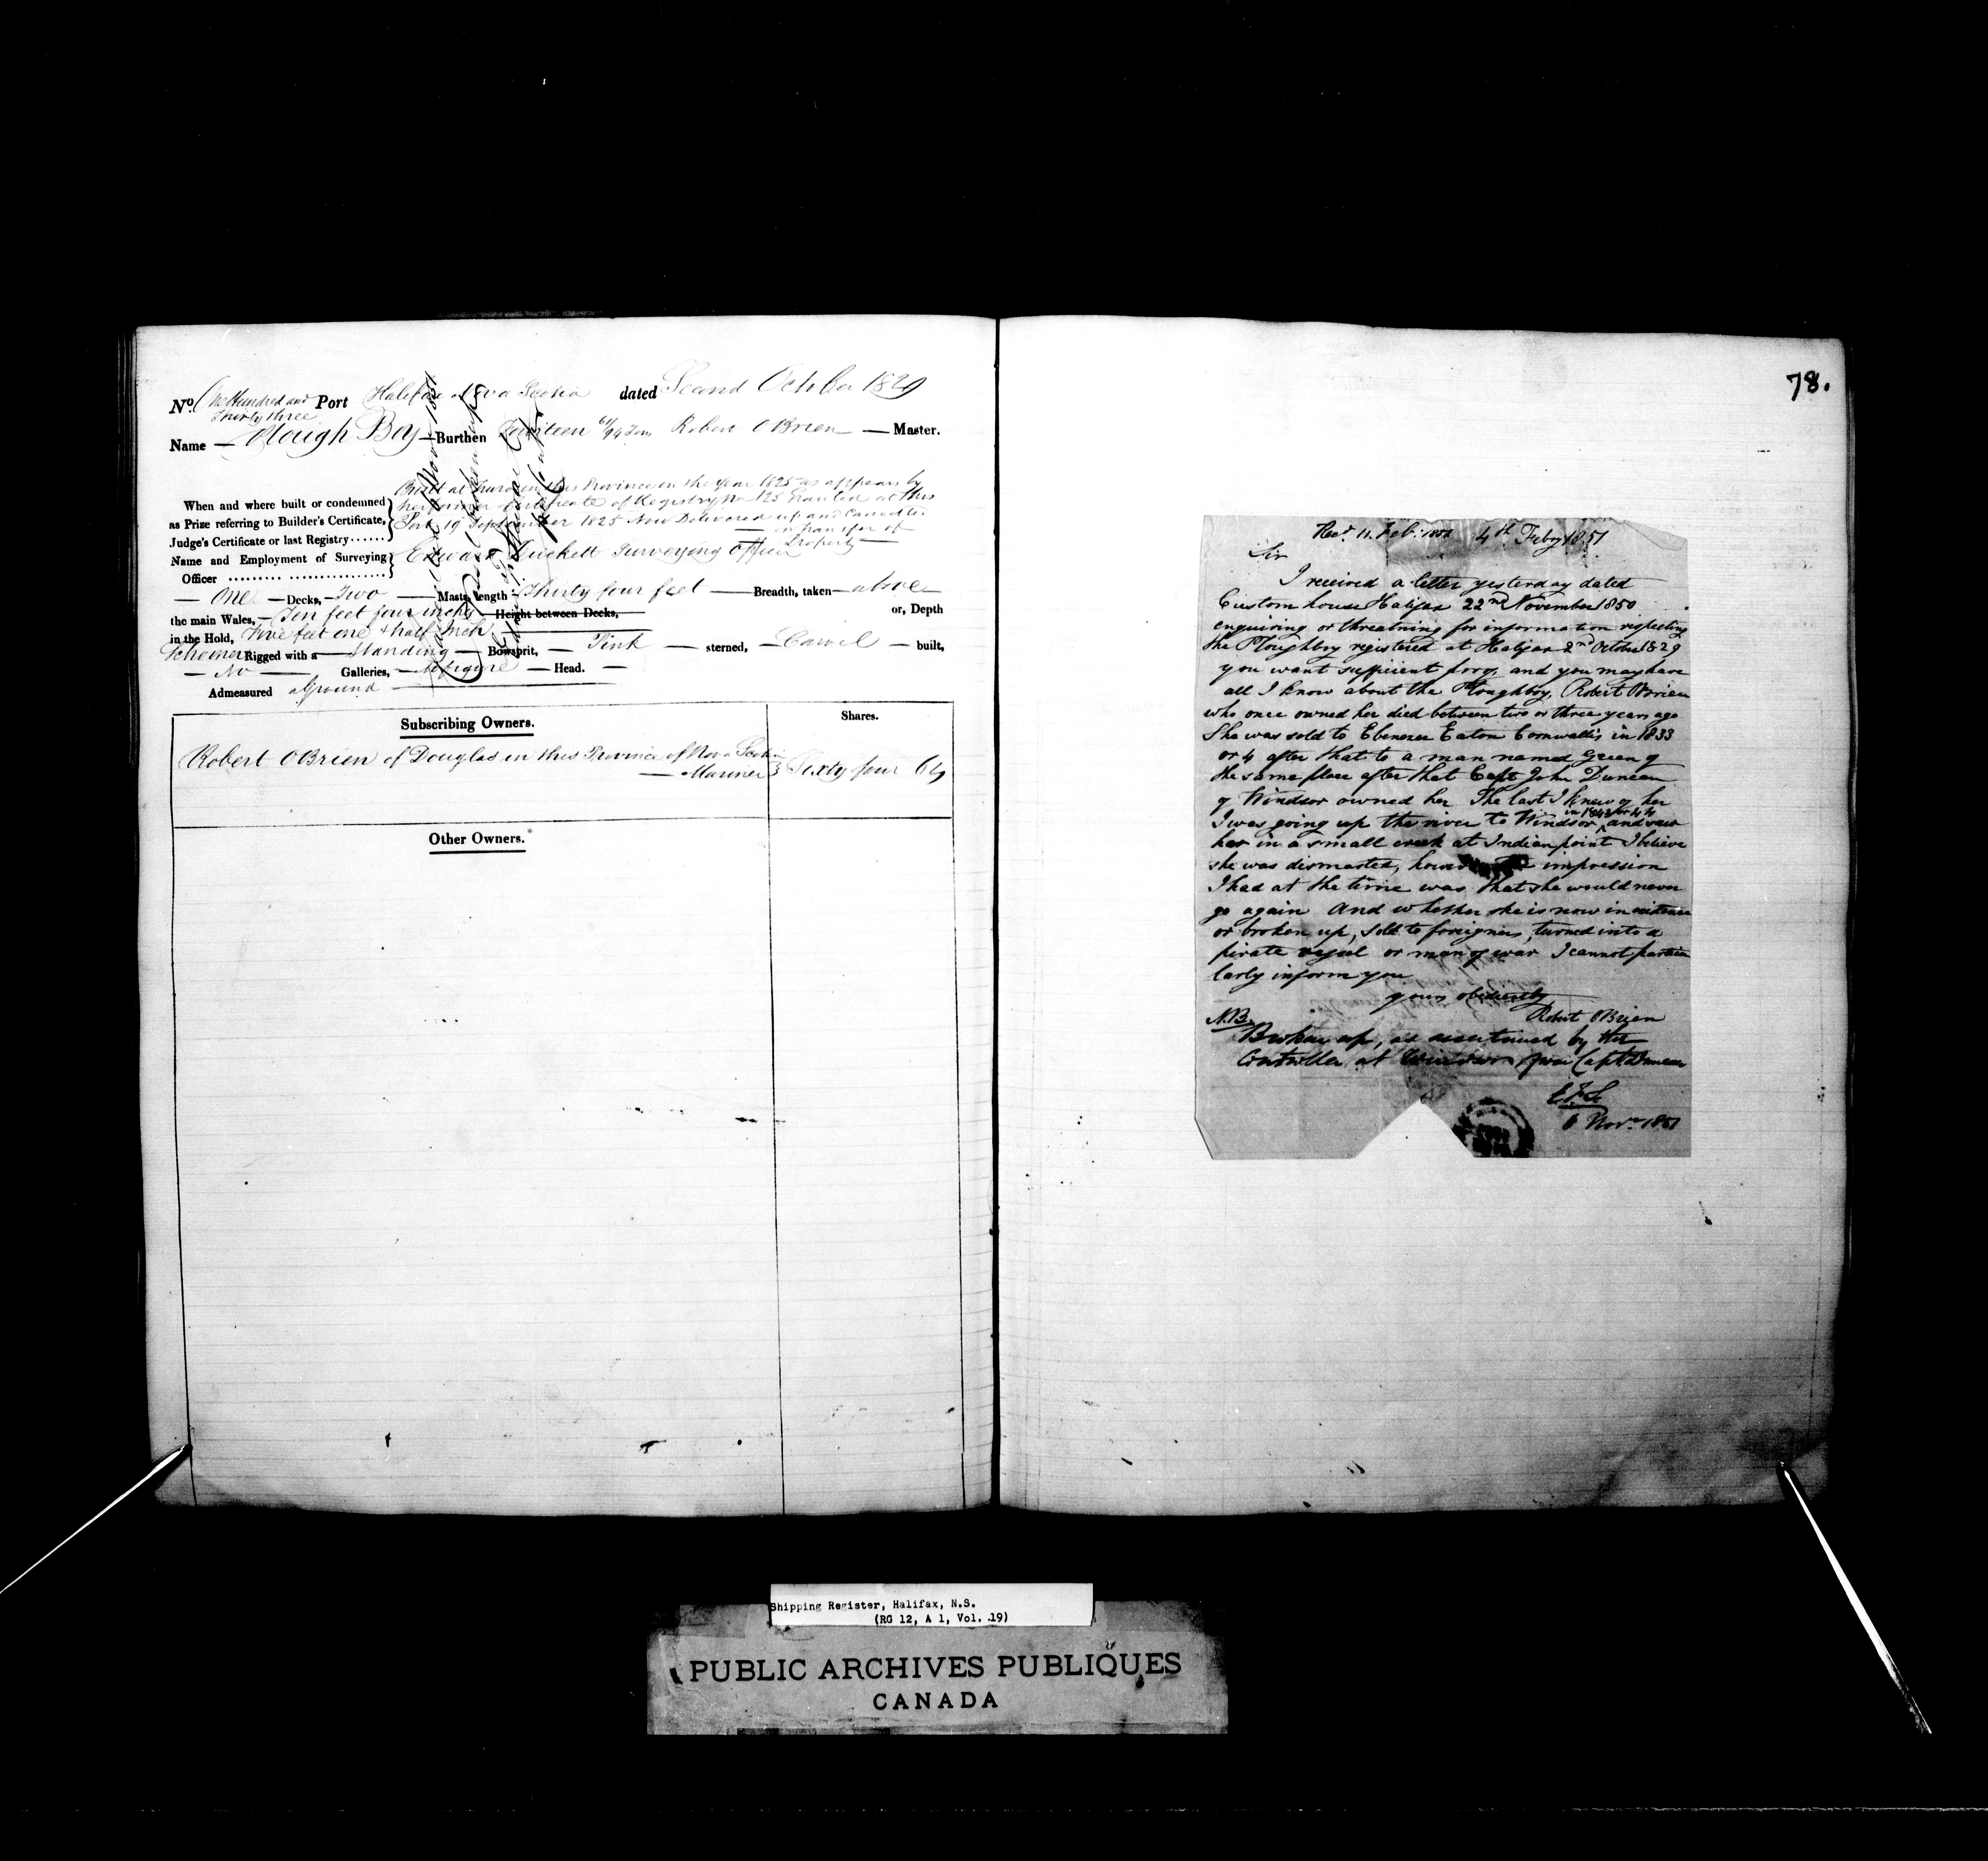 No. One Hundred and Thirty three Port Halifax Nova Scotia dated Second October 1829
Name — Plough Boy — Burthen Fourteen 61/94 Tons Robert OBrien — Master.
When and where built or condemned
as Prize referring to Builder's Certificate,
Judge's Certificate or last Registry......
Built at in this Province in the year 1825 as appears by
her former Certificate of Registry No 125 Granted at this
Port 19 September 1825 Now Delivered up and Cancelled
on transfer of
Property
Name and Employment of Surveying
Officer
Edward Duckett Surveying Officer
— One — Decks, — Two — Masts, Length — Thirty four feet — Breadth, taken — above
the main Wales, — Ten feet four inches Height between Decks, or, Depth
in the Hold, Five feet one & half Inch
Schooner Rigged with a — Standing — Bowsprit, — Pink — sterned, — Carvel — built,
— No — Galleries, — No figure — Head. —
Admeasured aGround
Subscribing Owners.
Shares.
Robert OBrien of Douglas in this Province of Nova Scotia
— Mariner } Sixty four 64
Other Owners.
78.
Recd. 11. Feb. 1851 4th Feby 1851
Sir
I received a letter yesterday dated
Custom house Halifax 22nd November 1850
enquiring or threatning for information respecting
the Ploughboy registered at Halifax 2nd October 1829
you want sufficient proof, and you may have
all I know about the Ploughboy, Robert OBrien
who once owned her died between two or three years ago
She was sold to Ebenezer Eaton Cornwallis in 1833
or 4 after that to a man named Green of
the same place after that Capt John Duncan
of Windsor owned her The last I knew of her
I was going up the river to Windsor in 1843 or 44 and saw
her in a small creek at Indian point I believe
she was dismasted, however impression
I had at the time was that she would never
go again And whether she is now in existence
or broken up, sold to foreigners, turned into a
pirate vessel or man of war I cannot particu
larly inform you
yours obediently
Robert OBrien
N.B.
Broken up, as ascertained by the
Controller at Windsor from Captn Duncan
6 Novr. 1851
Shipping Register, Halifax, N.S.
(RG 12, A 1, Vol. 19)
PUBLIC ARCHIVES PUBLIQUES
CANADA